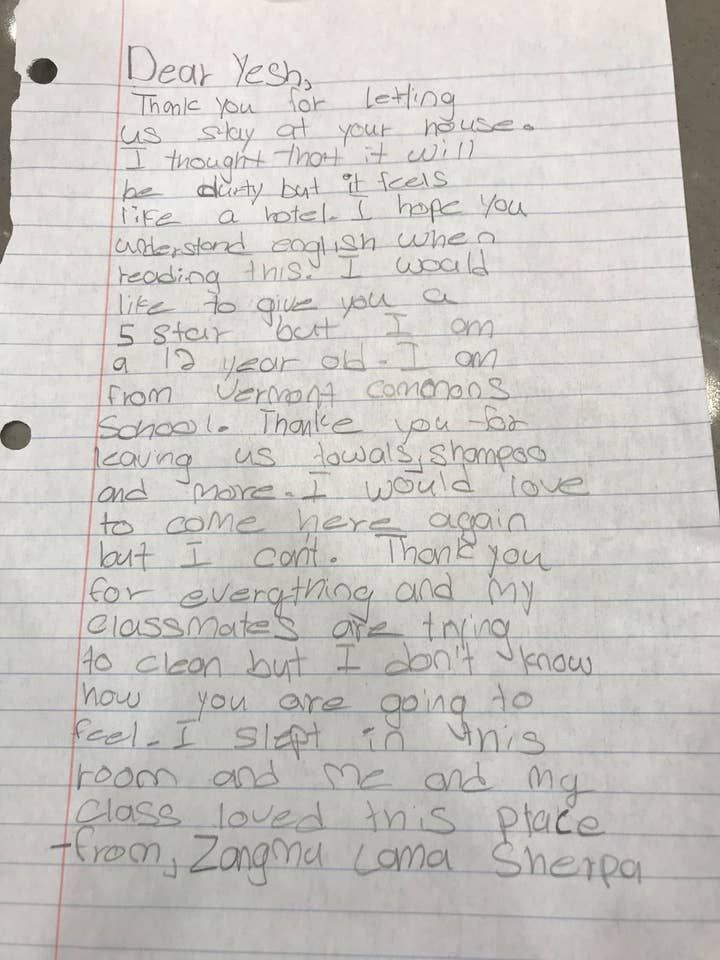 Dear Yesh,
Thank you for letting
us stay at your house.
I thought that it will
be durty but it feels
like a hotel. I hope you
understand english when
reading this. I would
like to give you a
5 star but I am
a 12 year old. I am
from Vermont commons
School. Thanke you for
leaving us towals, shampoo
and more. I would love
to come here again
but I can't. Thank you
for everything and my
classmates are trying
to clean but I don't know
how you are going to
feel. I slept in this
room and me and my
class loved this place
-from, Zangmu Lama Sherpa